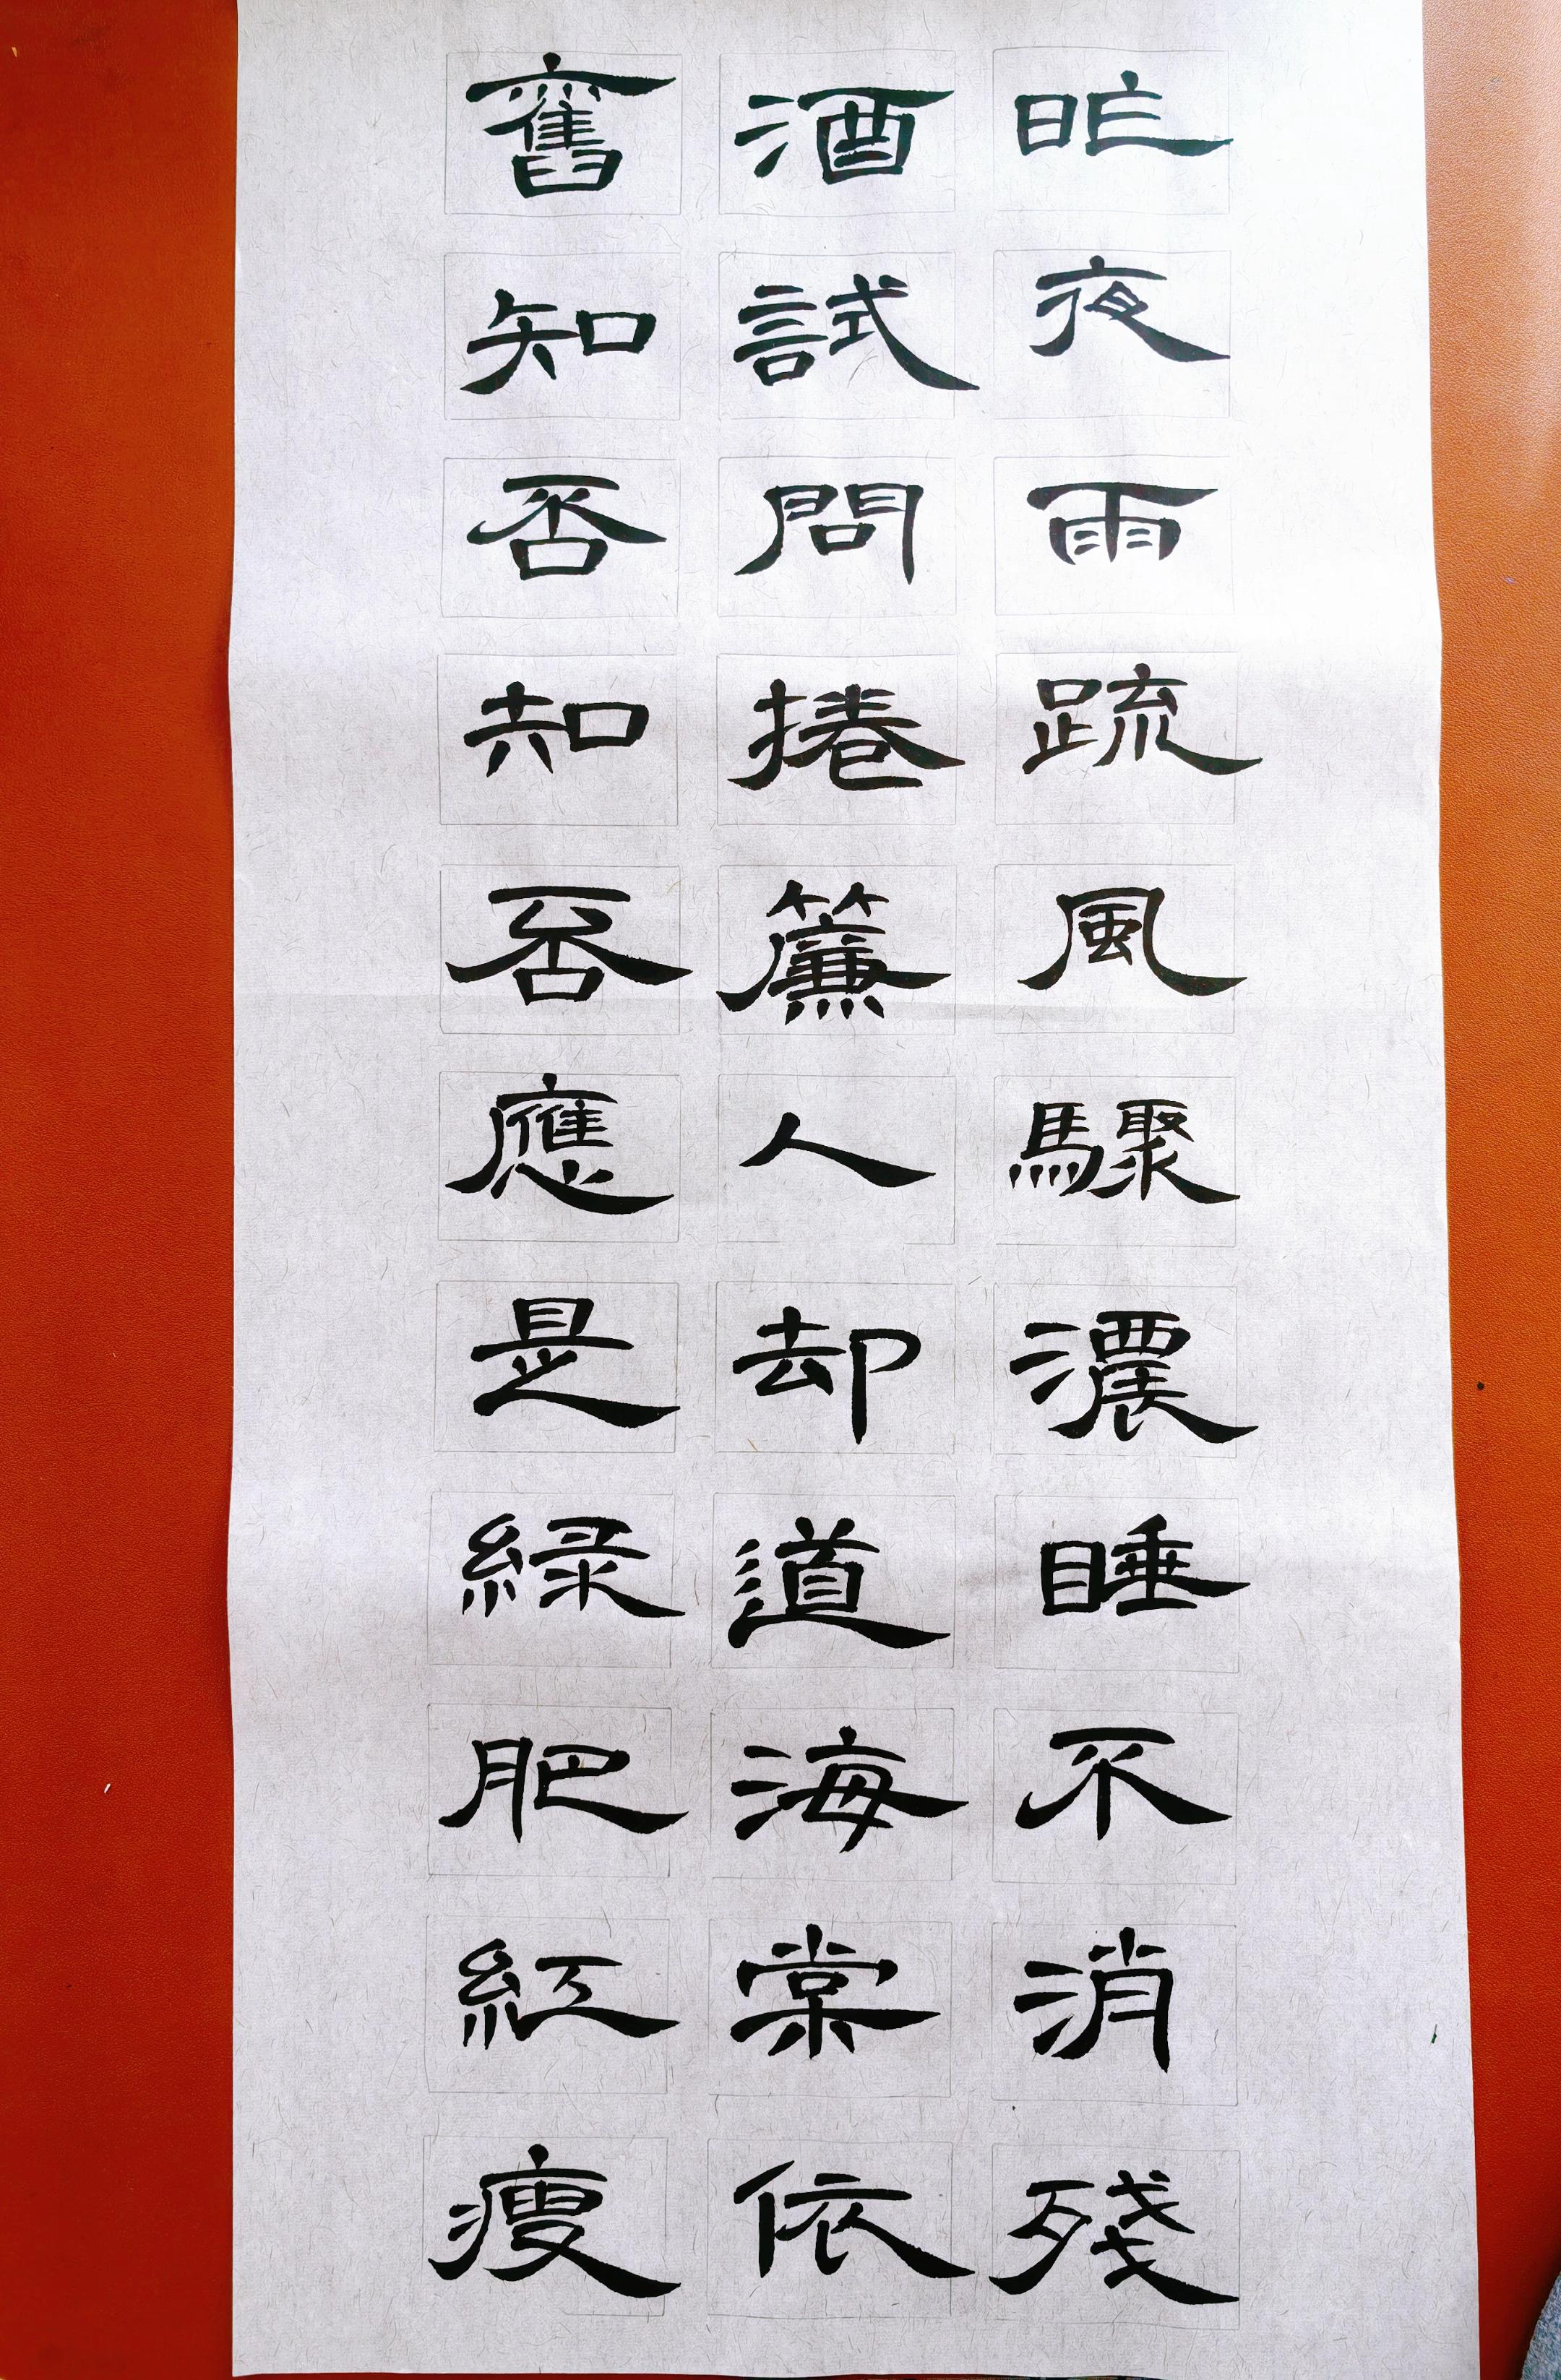 昨夜雨疏風驟濃睡不消殘
酒試問捲簾人却道海棠依
舊知否知否應是緑肥紅瘦